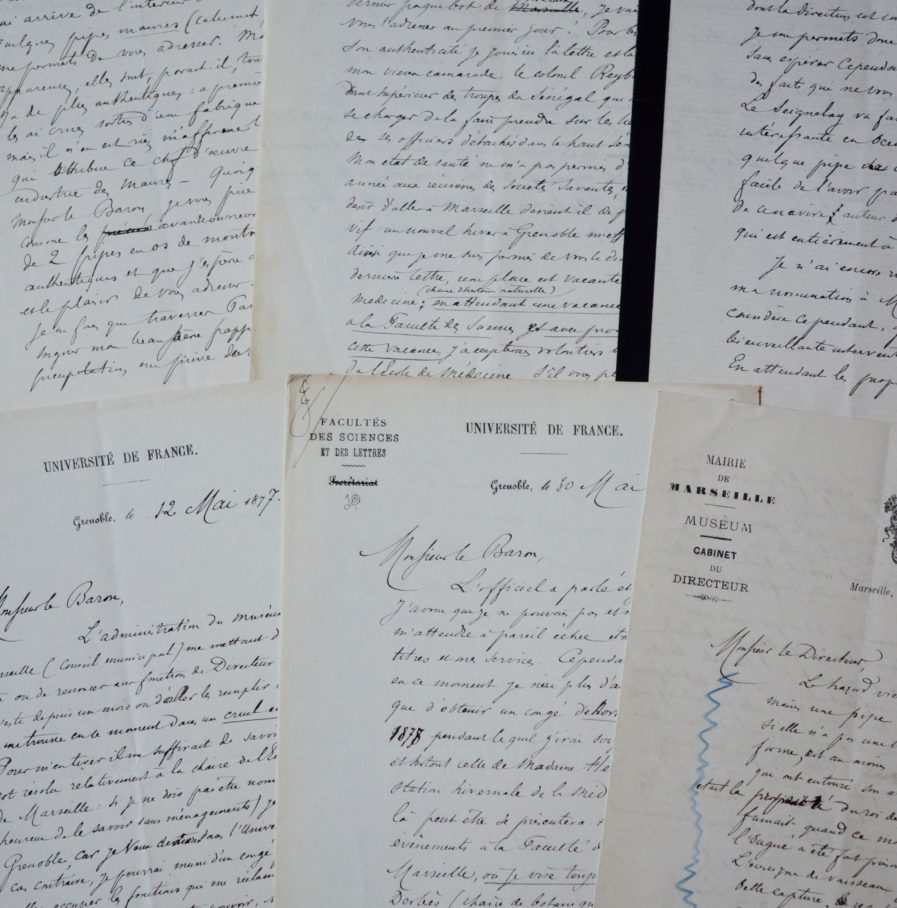 qui arrive de l'intérieur
quelques pipes maures (calumet
me permets de vous adresser. Ma
apparences, elles sont, paraît il, tou
de plus authentiques : a premiè
les ai crues sorties d'une fabrique
mais il n'en est rien m'affirme t
qui attribue ce chef d'œuvre
industrie des maures - Quoiq
Monsieur le Baron, je vous prie
comme les avantcoureurs
de 2 pipes en os de montr
authentiques et que j'espère
et le plaisir de vous adresser.
Je ne fais que traverser Par
mon beau père
ou prive de
dernier paquebot de Marseille, je vai
vous l'adresser au premier jour. Pour
son authenticité je joins ici la lettre
mon vieux camarade le colonel Reyb
supérieur des troupes du Sénégal qui
se charger de la faire prendre sur les li
de ses officiers détachés dans le haut
Mon état de santé ne m'a pas permis d
année aux réunions des Sociétés Savantes,
d'aller à Marseille devient il de p
vif : un nouvel hiver à Grenoble m'eff
ainsi que je me suis permis de vous le di
dernière lettre, une place est vacante
(chaire d'histoire naturelle)
médecine ; en attendant une vacance
a la Faculté des Sciences
cette vacance, j'accepterais volontiers
de l'Ecole de Médecine. S'il vous
dont la direction est con
Je me permets donc
sans espérer cependant
du fait que ne vous
Le Seignelay va fai
intéressante en Océ
quelque pipe de
facile de l'avoir pa
de ce navire, auteur d
qui est entièrement à
Je n'ai encore r
ma nomination à M
considère cependant,
bienveillante intervent
En attendant les prop
UNIVERSITÉ DE FRANCE.
Grenoble, le 12 Mai 1877.
Monsieur le Baron,
L'administration du muséu
(Conseil municipal) me mettant d
ou de renoncer aux fonctions de Directeur
reste depuis un mois ou d'aller le remplir
me trouve en ce moment dans un cruel e
Pour m'en tirer il me suffirait de savoir
est résolu relativement à la chaire de l'E
de Marseille : si je ne dois pas être nom
heureux de le savoir sans ménagements) je
Grenoble, car je veux dans l'Unive
cas contraire, je pourrai muni d'un congé,
occuper les fonctions qui me récla
FACULTÉS
DES SCIENCES
ET DES LETTRES
Secrétariat
UNIVERSITÉ DE FRANCE.
Grenoble, le 30 Mai
Monsieur le Baron,
L'officiel a parlé et
J'avoue que je ne pouvais pas
m'attendre à pareil échec
titres et mes services. Cependa
en ce moment je n'ai plus d'a
que d'obtenir un congé
1878 pendant lequel j'irai soi
et surtout celle de Madame He
station hivernale de la Méd
là peut être se précutera
événements à la Faculté d
Marseille, où je vise toujo
Derbès (chaire de botaniqu
MAIRIE
DE
MARSEILLE
MUSÉUM
CABINET
DU
DIRECTEUR
Marseille,
Monsieur le Directeur,
Le hazard vie
mains une pipe
si elle n'a pas une
forme, est au moins
qui ont entouré son a
était la du roi de
fumait quand ce m
l'Ougue a été fait prison
L'enseigne de vaisseau
belle capture,